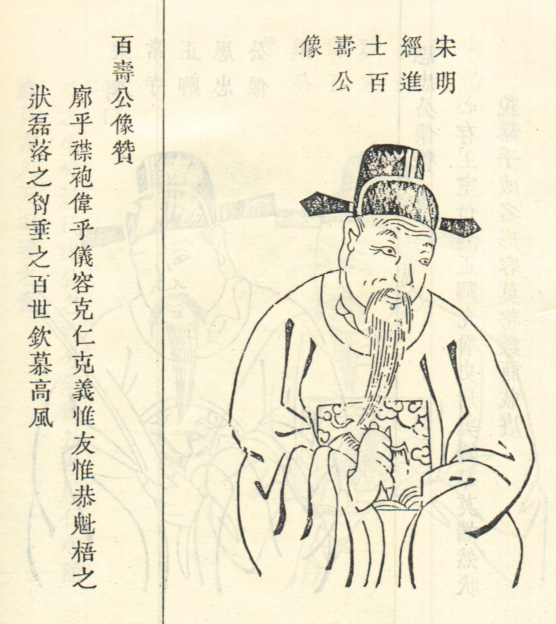 宋明
經進
士百
壽公
像
百壽公像贊
廓乎襟袍偉乎儀容克仁克義惟友惟恭魁梧之
狀磊落之胷垂之百世欽慕高風